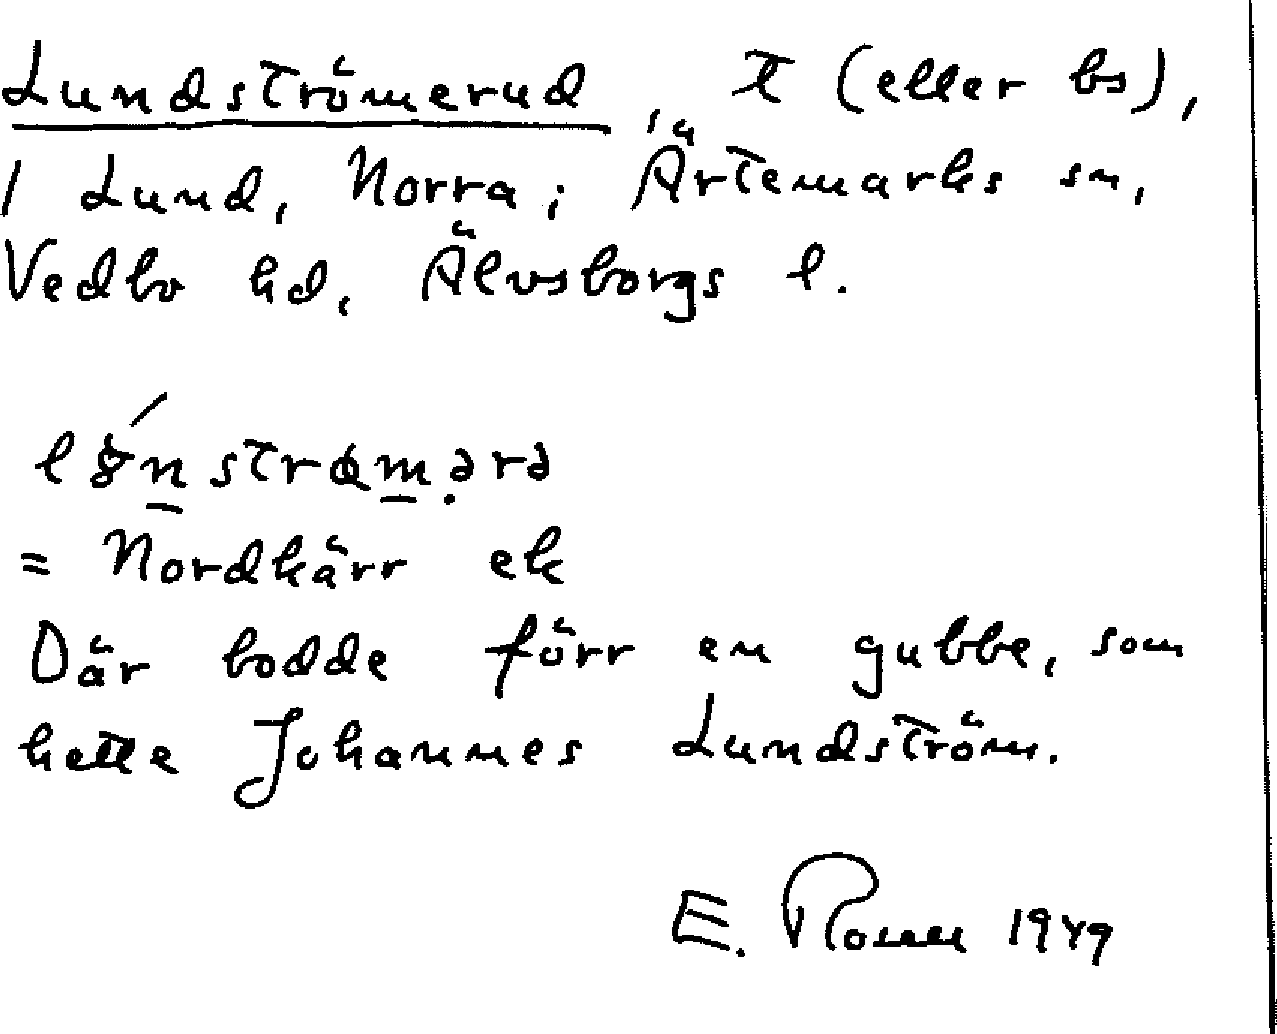 Lundströmerud, t (eller bs),
/ Lund, Norra; Ärtemarks sn,
Vedbo hd, Älvsborgs l.
= Nordkärr ek
Där bodde förr en gubbe, som
hette Johannes Lundström.
E. 1949